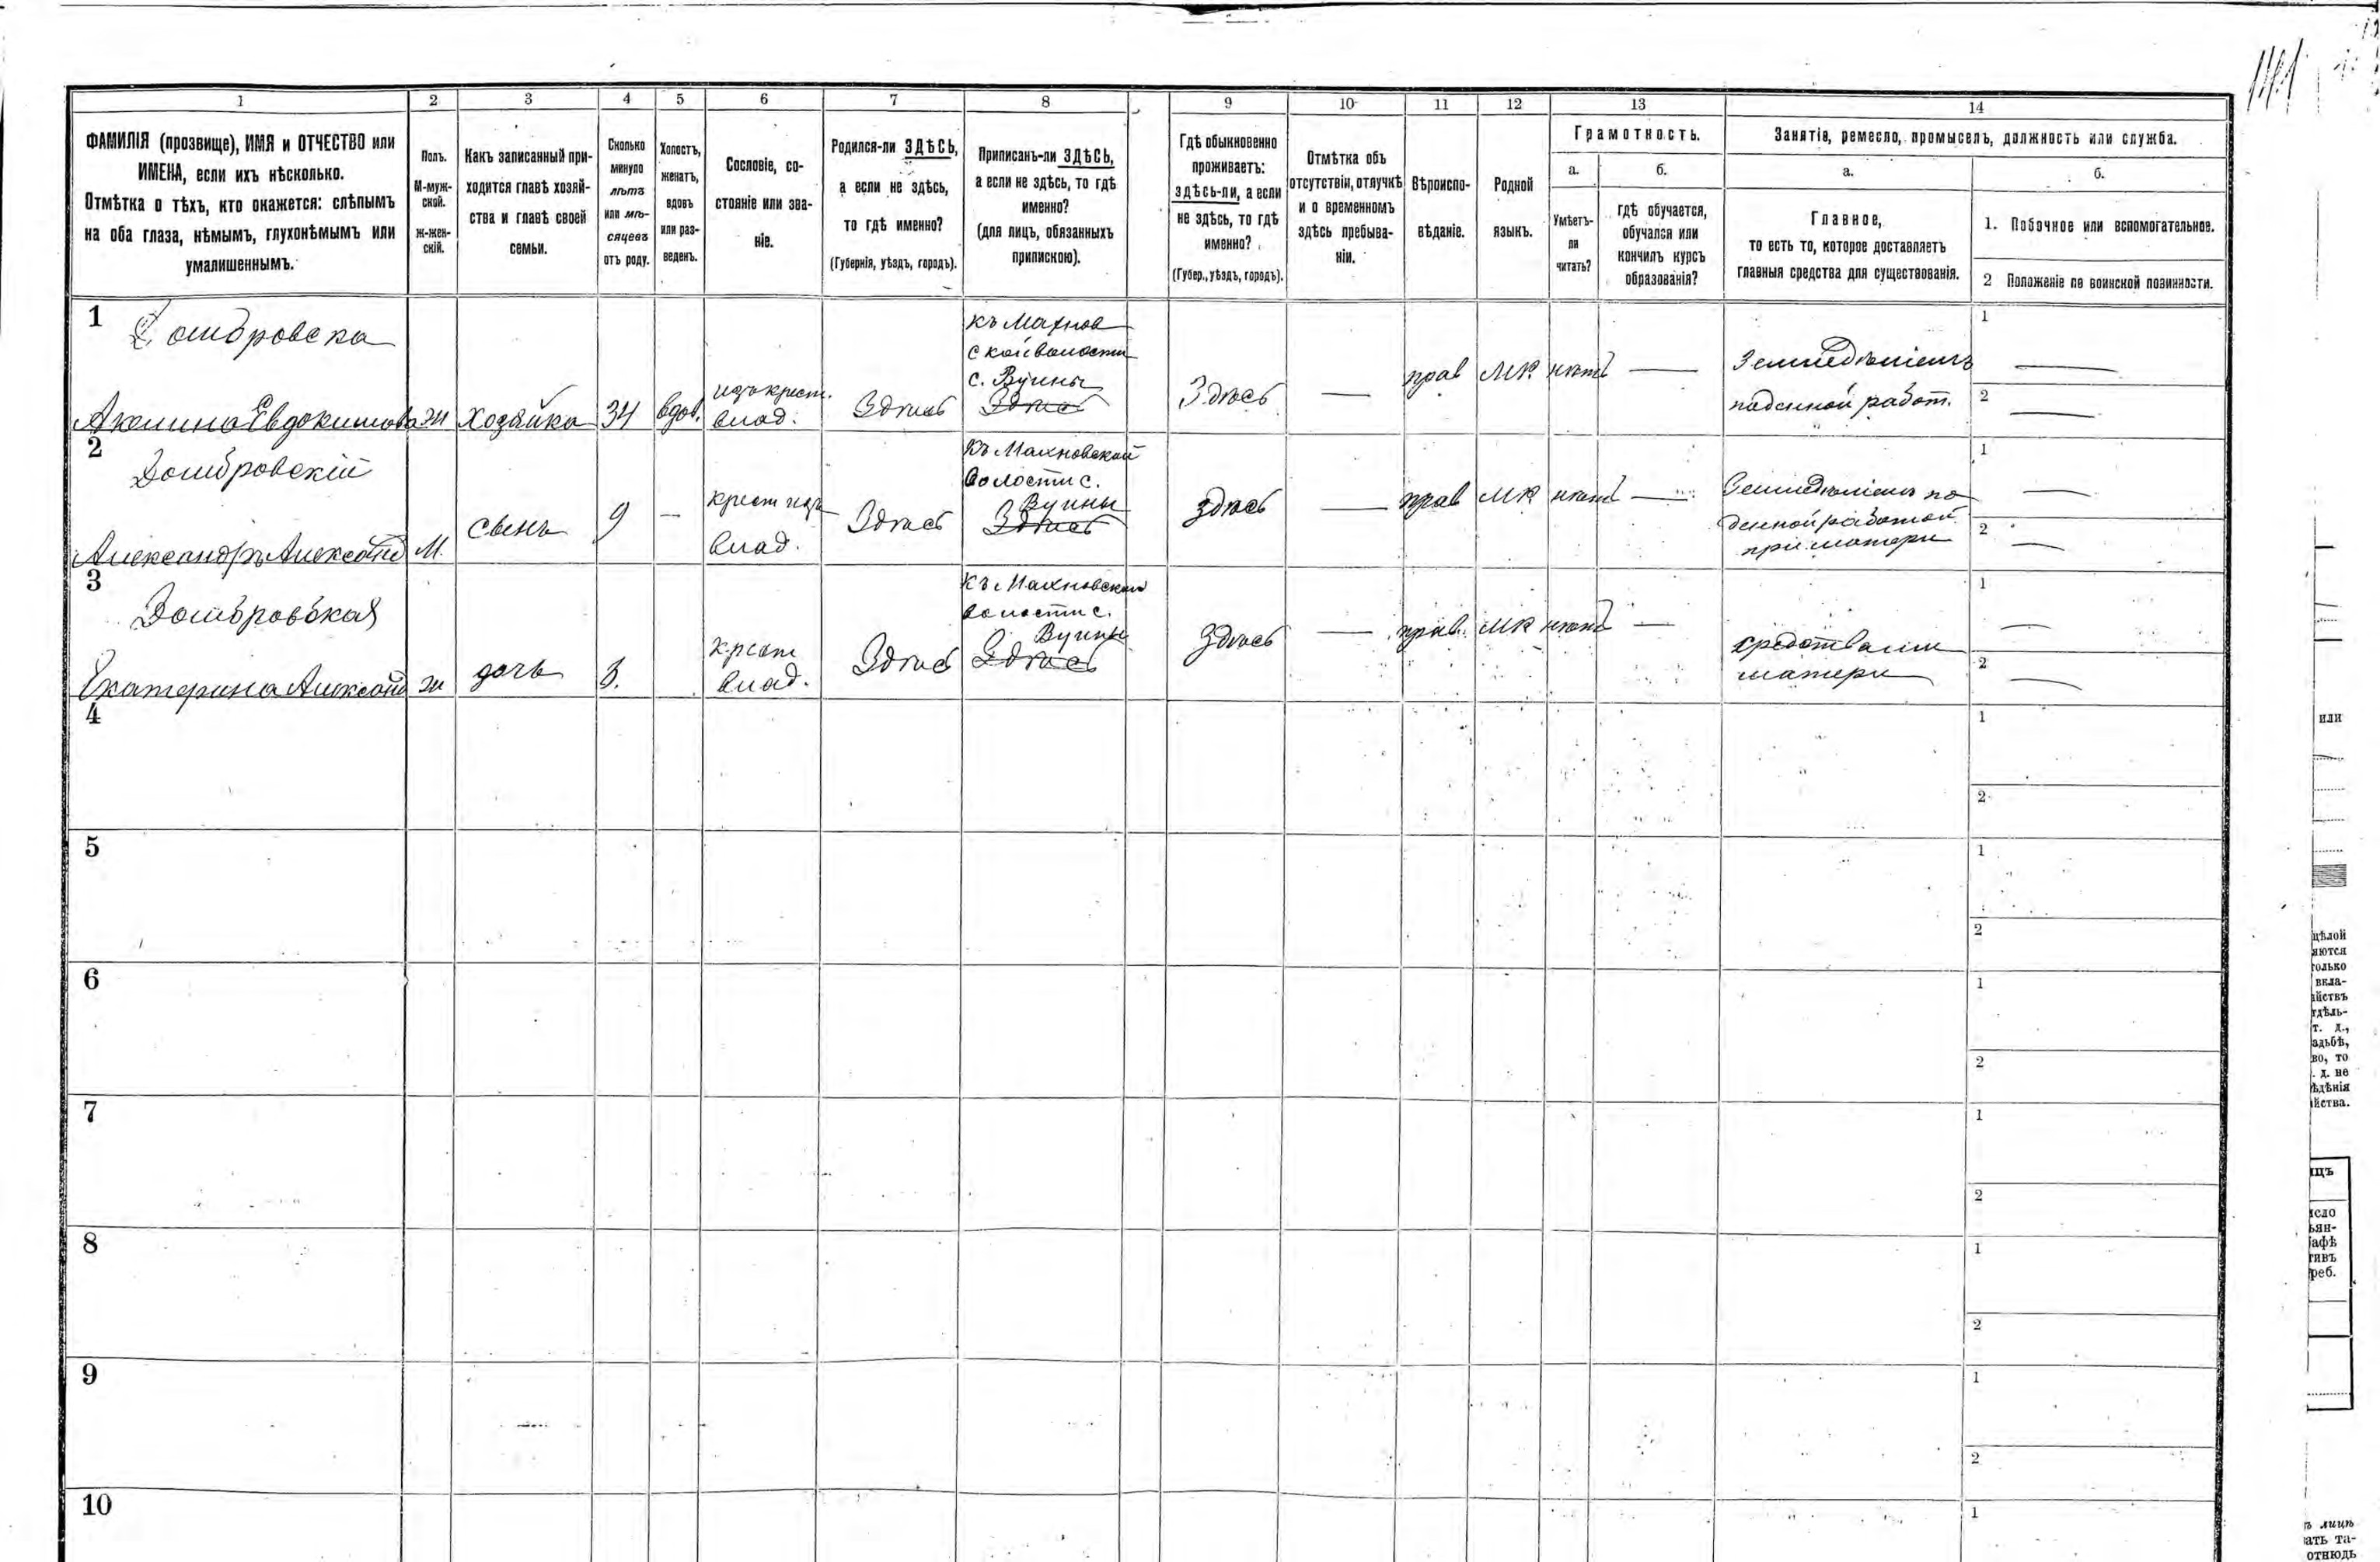 1 2 3 4 5 6 7 8 9 10 11 12 13 14
ФАМИЛІЯ (прозвище), ИМЯ и ОТЧЕСТВО или
ИМЕНА, если ихъ нѣсколько.
Отмѣтка о тѣхъ, кто окажется: слѣпымъ
на оба глаза, нѣмымъ, глухонѣмымъ или
умалишеннымъ.
Полъ.
М-муж-
ской.
Ж-жен-
скій.
Какъ записанный при-
ходится главѣ хозяй-
ства и главѣ своей
семьи.
Сколько
минуло
лѣтъ
или мѣ-
сяцевъ
отъ роду.
Холостъ,
женатъ,
вдовъ
или раз-
веденъ.
Сословіе, со-
стояніе или зва-
ніе.
Родился-ли ЗДѢСЬ,
а если не здѣсь,
то гдѣ именно?
(Губернія, уѣздъ, городъ).
Приписанъ-ли ЗДѢСЬ,
а если не здѣсь, то гдѣ
именно?
(для лицъ, обязанныхъ
припискою).
Гдѣ обыкновенно
проживаетъ:
здѣсь-ли, а если
не здѣсь, то гдѣ
именно?
(Губер., уѣздъ, городъ).
Отмѣтка объ
отсутствіи, отлучкѣ
и о временномъ
здѣсь пребыва-
ніи.
Вѣроиспо-
вѣданіе.
Родной
языкъ.
Грамотность.
а.
Умѣетъ-
ли
читать?
б.
гдѣ обучается,
обучался или
кончилъ курсъ
образованія?
Занятіе, ремесло, промыселъ, должность или служба.
а.
Главное,
то есть то, которое доставляетъ
главныя средства для существованія.
б.
1. Побочное или вспомогательное.
2 Положеніе по воинской повинности.
1
Домбровска
Акилина Евдокимова
ж
хозяйка
34
вдов.
изъ крест.
влад.
Здѣсь
Къ Махнов
ской волости
с. Вуины
Здѣсь
Здѣсь
—
прав
МК
нѣтъ
—
Земледѣліемъ
поденной работ.
1 —
2 —
2
Домбровскій
Александръ Александ
М.
сынъ
9
—
крест изъ
влад.
Здѣсь
Къ Махновской
волости с.
Вуины
Здѣсь
здѣсь
—
прав
МК
нѣтъ
—
Земледѣліемъ по
денной работой
при матери
1 —
2 —
3
Домбровская
Екатерина Александ
ж
дочь
3.
крест
влад.
Здѣсь
Къ Махновской
волости с.
Вуины
Здѣсь
Здѣсь
—
прав.
МК
нѣтъ
—
средствами
матери
1 —
2 —
4
1
2
5
1
2
6
1
2
7
1
2
8
1
2
9
1
2
10
1
или
цѣлой
яются
только
вкла-
яйствъ
тдѣль-
т. д.,
адьбѣ,
во, то
. д. не
ѣдѣнія
йства.
ицъ
исло
ьян-
афѣ
тивъ
реб.
ъ лицъ
ать та-
отнюдь